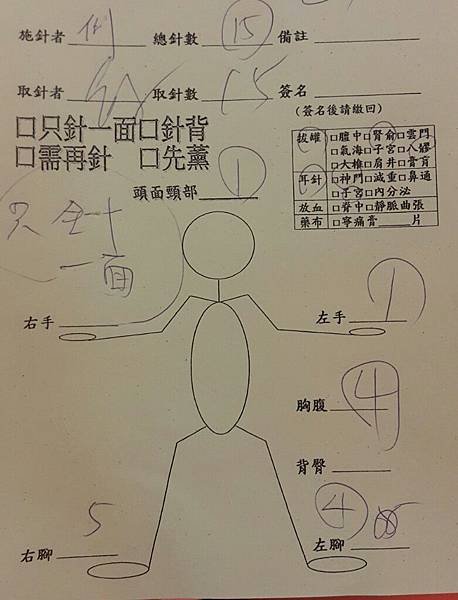 施針者 總針數 15 備註
取針者 取針數 15 簽名
(簽名後請繳回)
□只針一面□針背
□需再針 □先薰
拔罐 □膻中□腎俞□雲門
□氣海□子宮□八髎
□大椎□肩井□膏肓
耳針 □神門□減重□鼻通
□子宮□內分泌
放血 □脊中□靜脈曲張
藥布 □寧痛膏 片
頭面頸部 1
只針
一面
右手
左手 1
胸腹 4
背臀
右腳 5
左腳 4